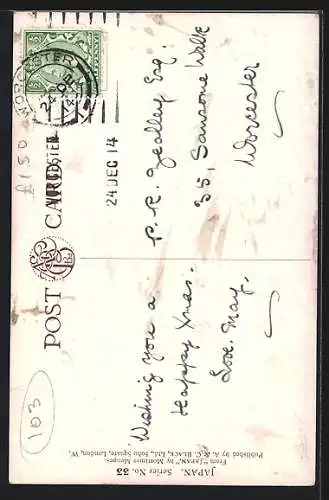 POST CARD
WORCESTER
24 DEC 14
£1.50
Wishing you a
Happy Xmas.
Love. May.
P. R. Zealley Esq.
35, Sansome Walk
Worcester
103
JAPAN. Series No. 33
From "JAPAN," by Mortimer Menpes.
Published by A. & C. BLACK, Ltd., Soho Square, London, W.